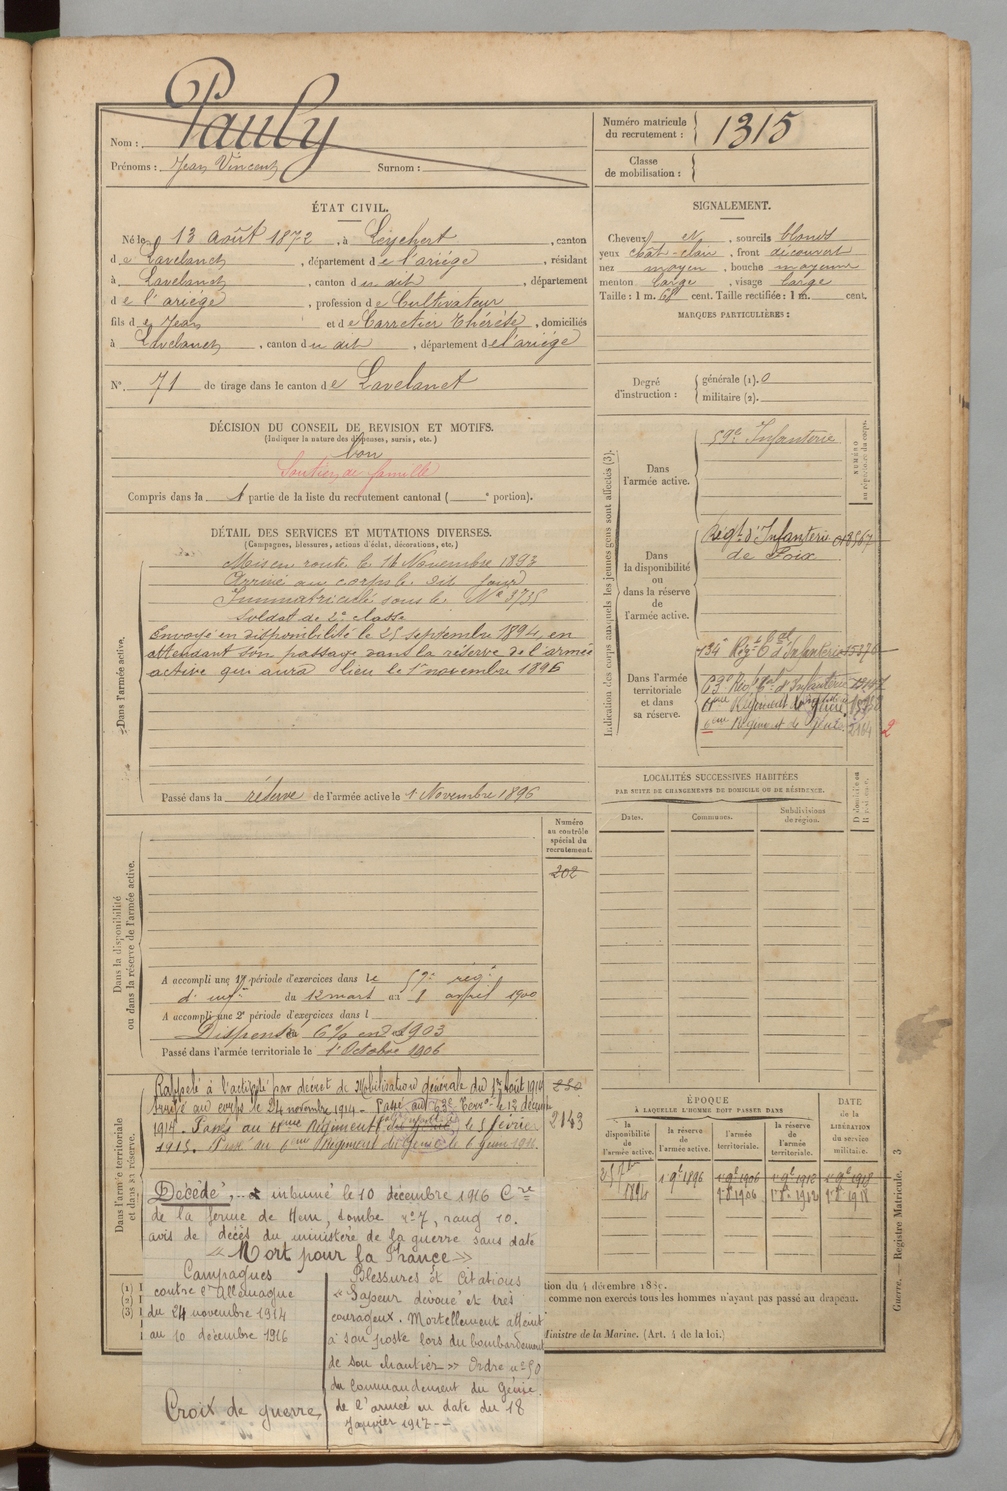 Nom : Pauly
Prénoms : Jean Vincent Surnom :
Numéro matricule du recrutement : 1315
Classe de mobilisation :
ÉTAT CIVIL.
Né le 13 août 1872, à Leychert, canton
de Lavelanet, département de l'ariége, résidant
à Lavelanet, canton du dit, département
de l'ariége, profession de Cultivateur
fils de Jean et de Carretier Thérèse, domiciliés
à Lavelanet, canton du dit, département de l'ariége
N°. 71 de tirage dans le canton de Lavelanet
SIGNALEMENT.
Cheveux et, sourcils blonds
yeux chât-clair, front découvert
nez moyen, bouche moyenne
menton large, visage large
Taille : 1 m. 68 cent. Taille rectifiée : 1 m. cent.
MARQUES PARTICULIÈRES :
Degré d'instruction : générale (1). 0
militaire (2).
DÉCISION DU CONSEIL DE REVISION ET MOTIFS.
(Indiquer la nature des dispenses, sursis, etc.)
bon
Soutien de famille
Compris dans la 1 partie de la liste du recrutement cantonal ( e portion).
DÉTAIL DES SERVICES ET MUTATIONS DIVERSES.
(Campagnes, blessures, actions d'éclat, décorations, etc.)
Dans l'armée active.
Mis en route le 16 Novembre 1893
Arrivé au corps le dit jour
Immatriculé sous le N° 3735
Soldat de 2e classe
Envoyé en disponibilité le 25 septembre 1894, en
attendant son passage dans la réserve de l'armée
active qui aura lieu le 1er novembre 1896
Passé dans la réserve de l'armée active le 1 Novembre 1896
Indication des corps auxquels les jeunes gens sont affectés (3).
NUMÉRO au répertoire du corps.
Dans l'armée active.
59e Infanterie
Dans la disponibilité ou dans la réserve de l'armée active.
Régt d'Infanterie
de Foix
Dans l'armée territoriale et dans sa réserve.
134e Régt tal d'Infanterie
63e Rég tal d'Infanterie
Régiment de Génie
Régiment de Génie 2164
2
LOCALITÉS SUCCESSIVES HABITÉES
PAR SUITE DE CHANGEMENTS DE DOMICILE OU DE RÉSIDENCE.
Dates. Communes. Subdivisions de région.
Dans la disponibilité ou dans la réserve de l'armée active.
Numéro au contrôle spécial du recrutement.
202
A accompli une 1re période d'exercices dans le 59e rég.
d'infie du 12 mars au 8 avril 1900
A accompli une 2e période d'exercices dans l
Dispensé 6% en 1903
Passé dans l'armée territoriale le 1er Octobre 1906
Dans l'armée territoriale et dans sa réserve.
Rappelé à l'activité par décret de Mobilisation générale du 1er Août 1914
Arrivé au corps le 24 novembre 1914 - Passé au 63e Terral le 12 décembre
1914. Passé au Régiment le 5 février
1915. Passé au Régiment du Génie le 6
2143
ÉPOQUE
À LAQUELLE L'HOMME DOIT PASSER DANS
la disponibilité de l'armée active.
la réserve de l'armée active.
l'armée territoriale.
la réserve de l'armée territoriale.
DATE de la LIBÉRATION du service militaire.
25 7bre 1894
1er 9bre 1896
1er 9bre 1906
1er 9bre 1912
1er 9bre 1918
1er 8bre 1906
1er 8bre 1912
1er 8bre 1918
Décédé, inhumé le 10 décembre 1916 Cre
de la ferme de Hem, tombe n°7, rang 10.
avis de décès du ministère de la guerre sans date
« Mort pour la France »
Campagnes
contre l'Allemagne
du 24 novembre 1914
au 10 décembre 1916
Croix de guerre
Blessures et Citations
« Sapeur dévoué et très
courageux. Mortellement atteint
à son poste lors du bombardement
de son chantier » Ordre n° 50
du Commandement du Génie
de l'armée en date du 18
Janvier 1917 --
(1)
(2)
(3)
tion du 4 décembre 188
comme non exercés tous les hommes n'ayant pas passé au drapeau.
Ministre de la Marine. (Art. 4 de la loi.)
Guerre. — Registre Matricule. 3